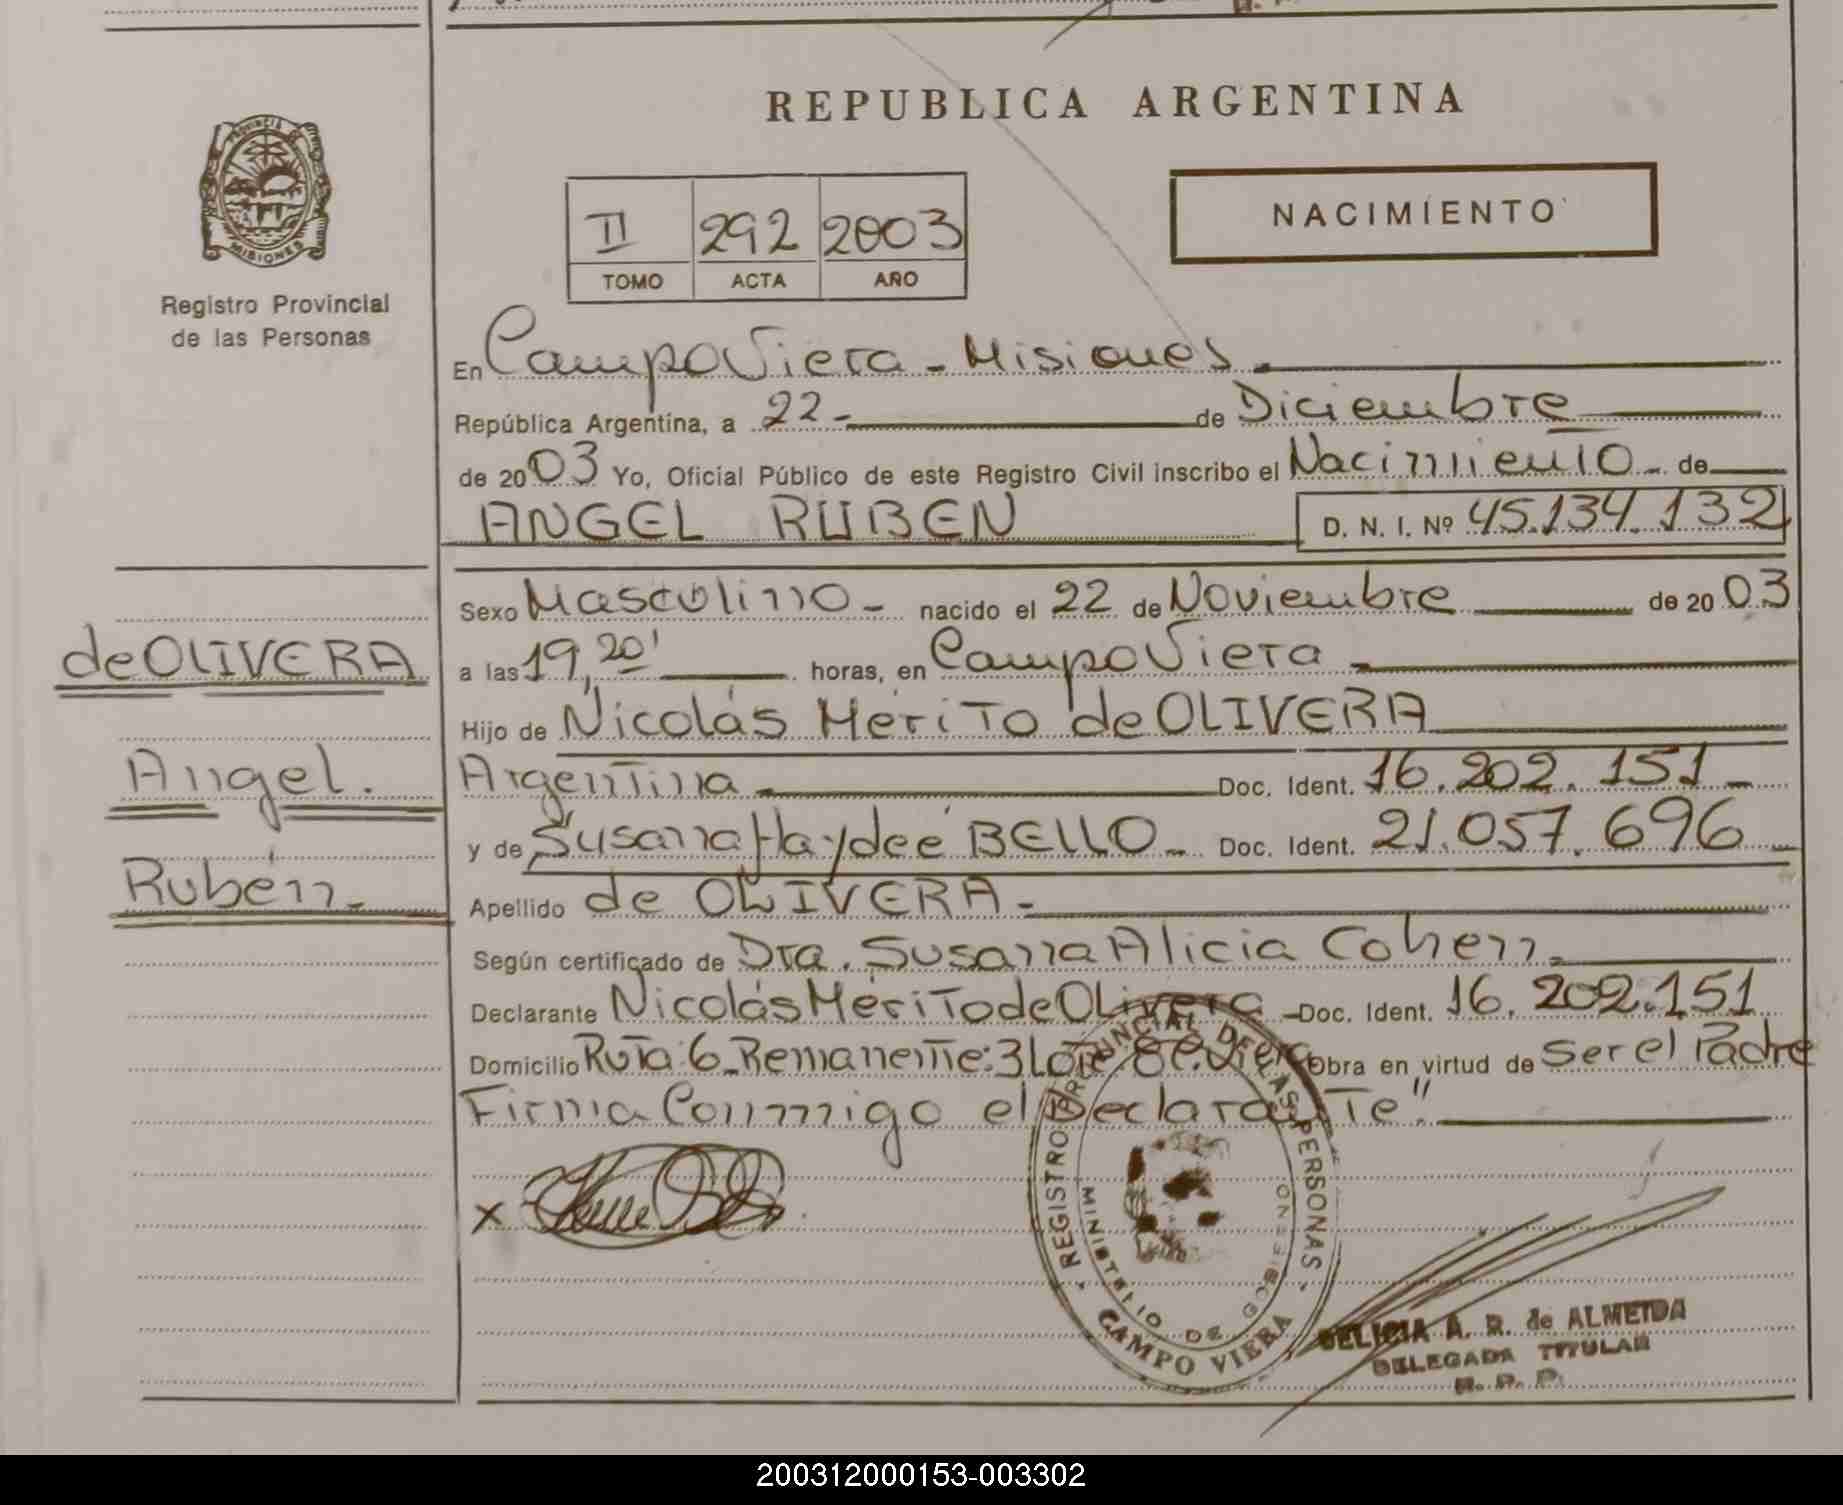 REPUBLICA ARGENTINA
PROVINCIA DE MISIONES
Registro Provincial
de las Personas
II 292 2003
TOMO ACTA AÑO
NACIMIENTO
En Campo Viera - Misiones
República Argentina, a 22 - de Diciembre
de 2003 Yo, Oficial Público de este Registro Civil inscribo el Nacimiento - de
ANGEL RUBEN D. N. I. Nº 45.134.132
Sexo Masculino - nacido el 22 de Noviembre de 2003
de OLIVERA
a las 19,20' horas, en Campo Viera
Hijo de Nicolás Mérito de OLIVERA
Angel.
Argentina Doc. Ident. 16.202.151 -
y de Susana Haydeé BELLO - Doc. Ident. 21.057.696
Rubén -
Apellido de OLIVERA -
Según certificado de Dra. Susana Alicia Cohen
Declarante Nicolás Mérito de Olivera - Doc. Ident. 16.202.151
Domicilio Ruta 6 - Remanente: 3 Lote 8 C. Viera Obra en virtud de ser el Padre
Firma Conmigo el Declarante"
x
REGISTRO PROVINCIAL DE LAS PERSONAS
MINISTERIO DE GOBIERNO
CAMPO VIERA
DELICIA A. R. de ALMEIDA
DELEGADA TITULAR
R. P. P.
200312000153-003302